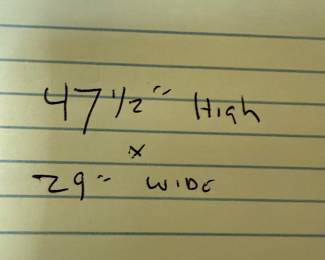 47 1/2" High
x
29" WIDE